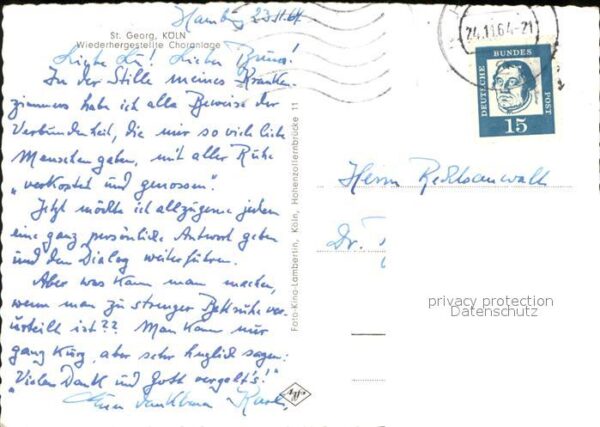 St. Georg, KÖLN
Wiederhergestellte Choranlage
Hamburg 23.11.64
Liebe Lu! Lieber Bruno!
In der Stille meines Kranken-
zimmers habe ich alle Beweise der
Verbundenheit, die mir so viele liebe
Menschen gaben, mit aller Ruhe
„verkostet und genossen".
Jetzt möchte ich allzugerne jedem
eine ganz persönliche Antwort geben
und den Dialog weiterführen.
Aber was kann man machen,
wenn man zu strenger Bettruhe ver-
urteilt ist?? Man kann nur
ganz kurz, aber sehr herzlich sagen:
„Vielen Dank und Gott vergelt's!"
Euer dankbarer
Foto-Kino-Lambertin, Köln, Hohenzollernbrücke 11
24.11.64-21
DEUTSCHE BUNDES POST
15
Herrn Rechtsanwalt
Dr.
privacy protection
Datenschutz